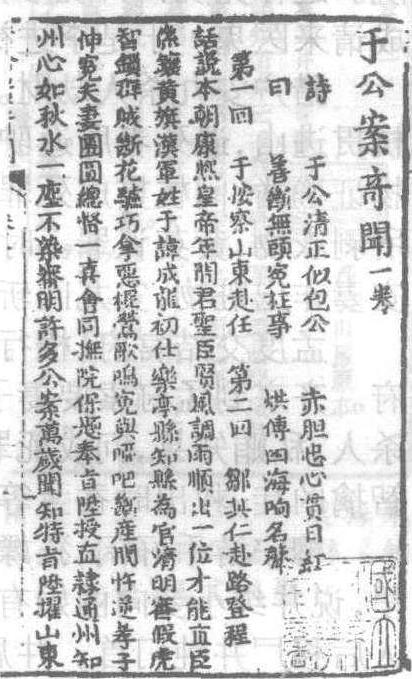 于公案奇聞一卷
詩 于公清正似包公 赤胆忠心貫日紅
曰 善斷無頭冤枉事 烘傳四海响名聲
第一回 于按察山東赴任 第二回 鄒其仁赴路登程
話說本朝康熙皇帝年間君聖臣賢風調雨順出一位才能直臣
係鑲黃旗漢軍姓于諱成龍初仕樂亭縣知縣為官清明審假虎
智鎖群賊斷花驢巧拿惡棍鶯歌鳴冤與啞吧斷產問忤逆孝子
伸冤夫妻團圓總督一真會同撫院保題奉旨陞授直隸通州知
州心如秋水一塵不染審明許多公案萬歲聞知特旨陞擢山東